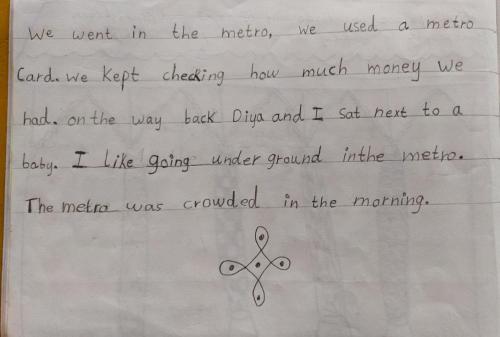 We went in the metro, we used a metro
Card. We kept checking how much money we
had. on the way back Diya and I sat next to a
baby. I like going under ground inthe metro.
The metro was crowded in the morning.